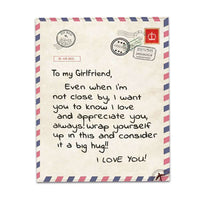 BY AIR MAIL
To my Girlfriend,
Even when i'm
not close by. I want
you to know I love
and appreciate you,
always! wrap yourself
up in this and consider
it a big hug!!
I LOVE YOU!